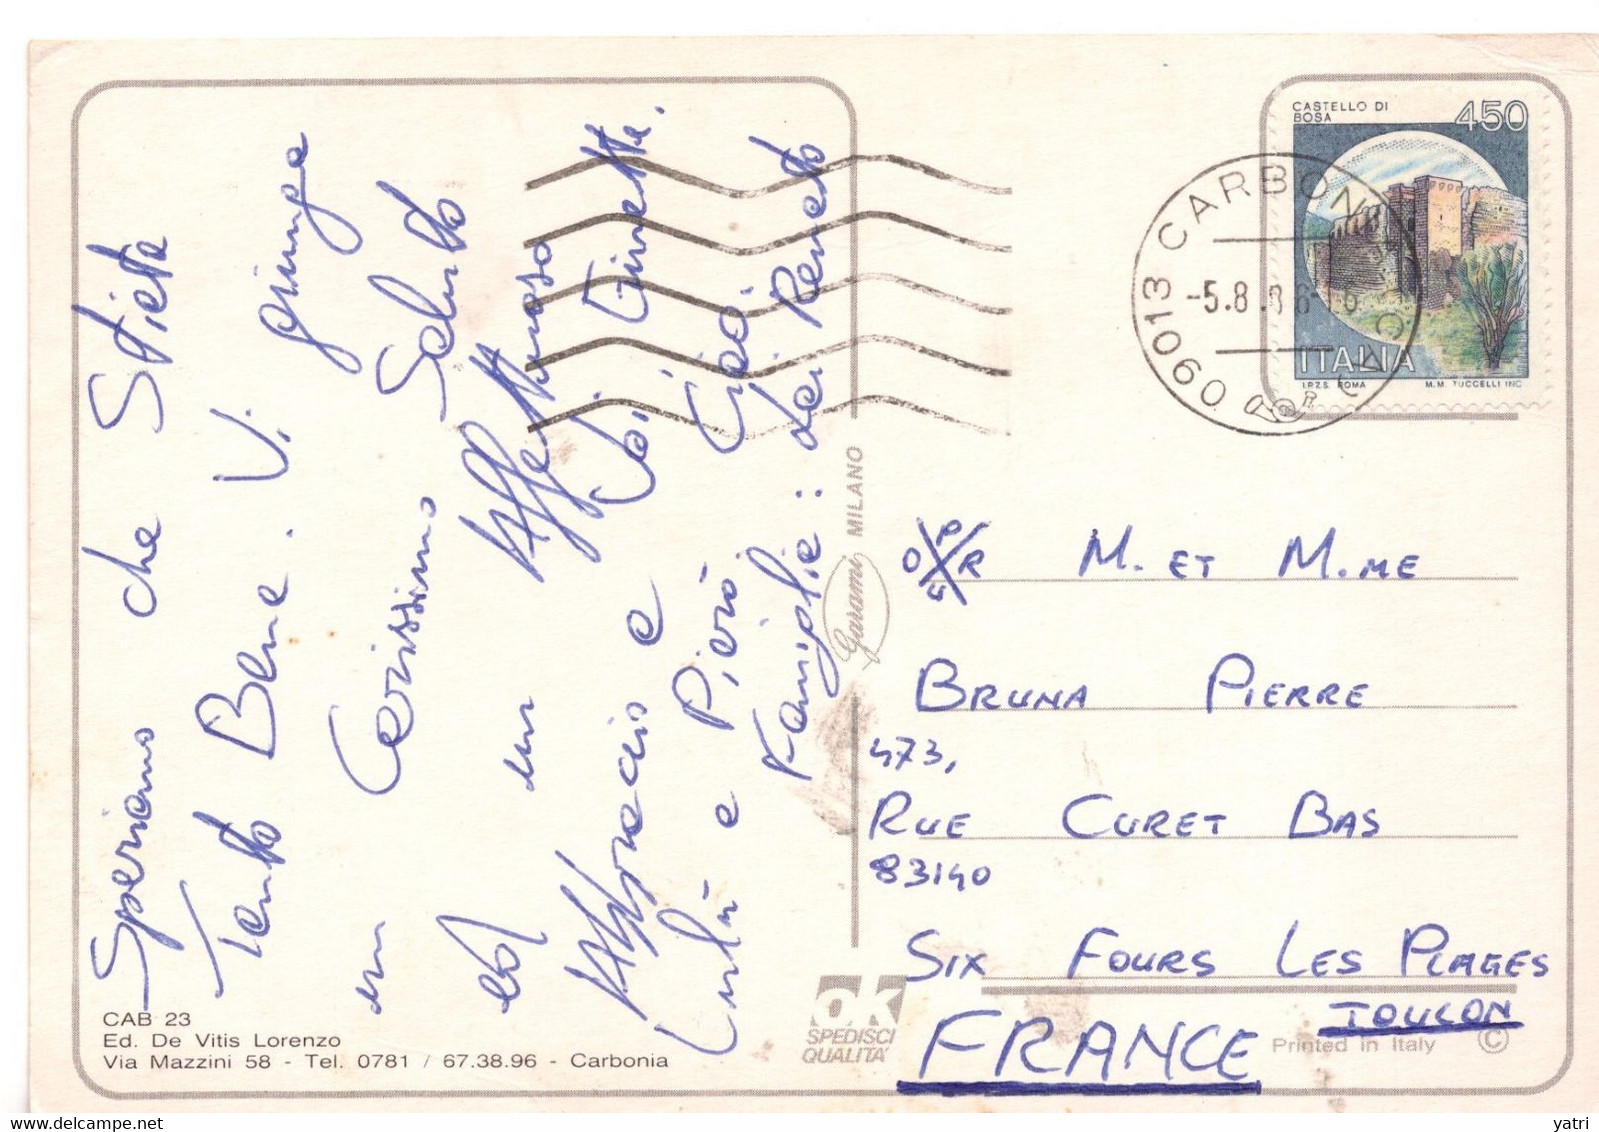 Speriamo che Stiate
Tanto Bene. Vi giunga
un Carissimo Saluto
ed un Affettuoso
Abbraccio e
Lulù e Pierò
Ciao.
Famiglie: dai Renato
CAB 23
Ed. De Vitis Lorenzo
Via Mazzini 58 - Tel. 0781 / 67.38.96 - Carbonia
Garami MILANO
OK
SPEDISCI
QUALITA'
CASTELLO DI
BOSA
450
ITALIA
I.P.Z.S. ROMA
M.M. TUCCELLI INC.
09013 CARBONIA
-5.8
M. ET M.ME
BRUNA PIERRE
473,
RUE CURET BAS
83140
SIX FOURS LES PLAGES
TOULON
FRANCE
Printed in Italy ©
delcampe.net
yatri